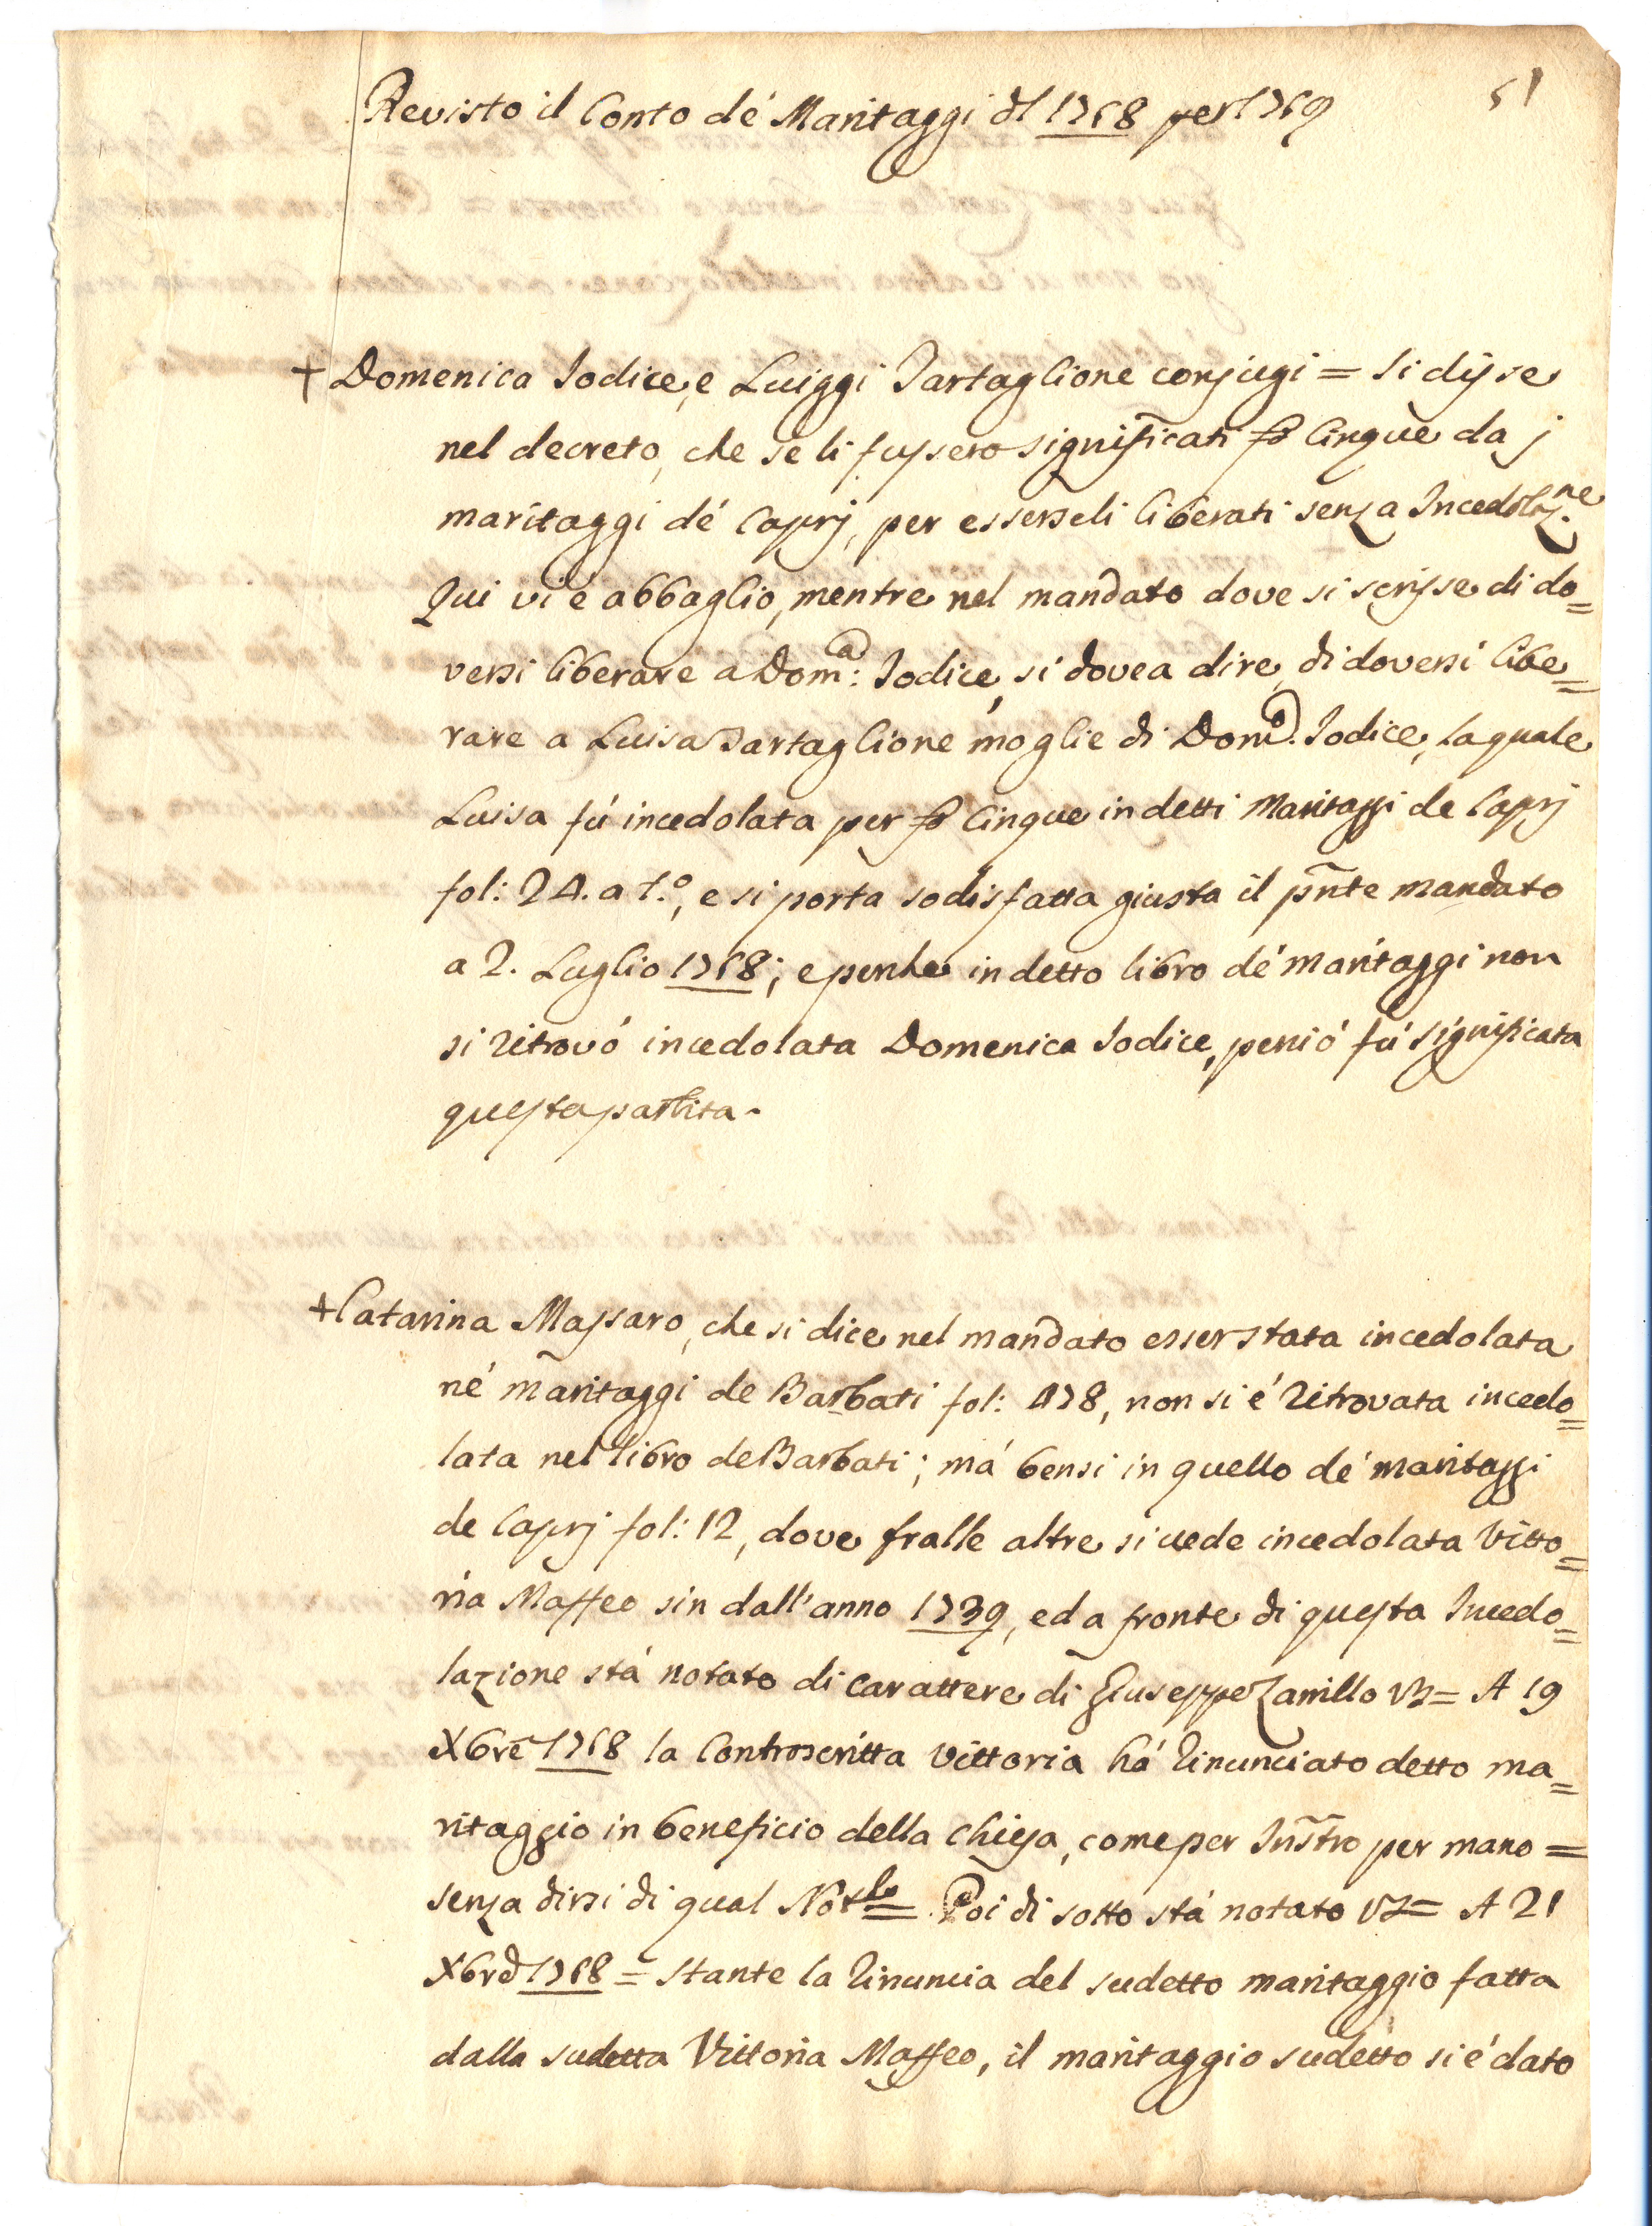 51
Revisto il Conto de' Maritaggi dl 1768 per 1769
+ Domenica Iodice, e Luiggi Tartaglione conjugi = Si disse
nel decreto, che se li fussero significati Cinque da j
maritaggi de' Caprj, per esserseli liberati senza Incedolaz.ne
Qui vi è abbaglio, mentre nel mandato dove si scrisse di do=
versi liberare a Dom:a Iodice, si dovea dire, di doversi libe=
rare a Luisa Tartaglione moglie di Dom.o Iodice, la quale
Luisa fù incedolata per Cinque in detti Maritaggi de Caprj
fol: 24. a t.o, e si porta sodisfatta giusta il pñte mandato
a 2. Luglio 1768; e perche in detto libro de' maritaggi non
si ritrovò incedolata Domenica Iodice, perciò fù significata
questa partita.
+ Catarina Massaro, che si dice nel mandato esser stata incedolata
ne' maritaggi de Barbati fol: 478, non si è ritrovata incedo=
lata nel libro de Barbati; mà bensi in quello de' maritaggi
de Caprj fol: 12, dove fralle altre si vede incedolata Vitto=
ria Maffeo sin dall'anno 1739, ed a fronte di questa Incedo=
lazione stà notato di carattere di Giuseppe Zarrillo vz= A 19
Xbre 1768 la Controscritta Vittoria hà rinunciato detto ma=
ritaggio in beneficio della Chiesa, come per Instro per mano =
senza dirsi di qual Not.o = Poi di sotto stà notato vz= A 21
Xbre 1768 = Stante la rinuncia del sudetto maritaggio fatta
dalla sudetta Vittoria Maffeo, il maritaggio sudetto si è dato